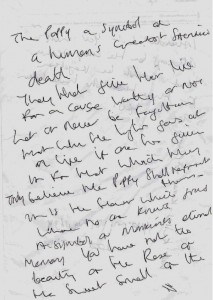 The Poppy a Symbol of
a human's Greatest Sacrifice
death
They lived give their life
For a cause worthy or not
but or never be forgotten
that when the lights goes out
or live it one has given
it for that which they
Truly believe the Poppy shall represent
them
it is the flower which
where no one knows
A symbol of Mankinds eternal
Memory You have not the
beauty of the Rose or
the Sweet Smell of the